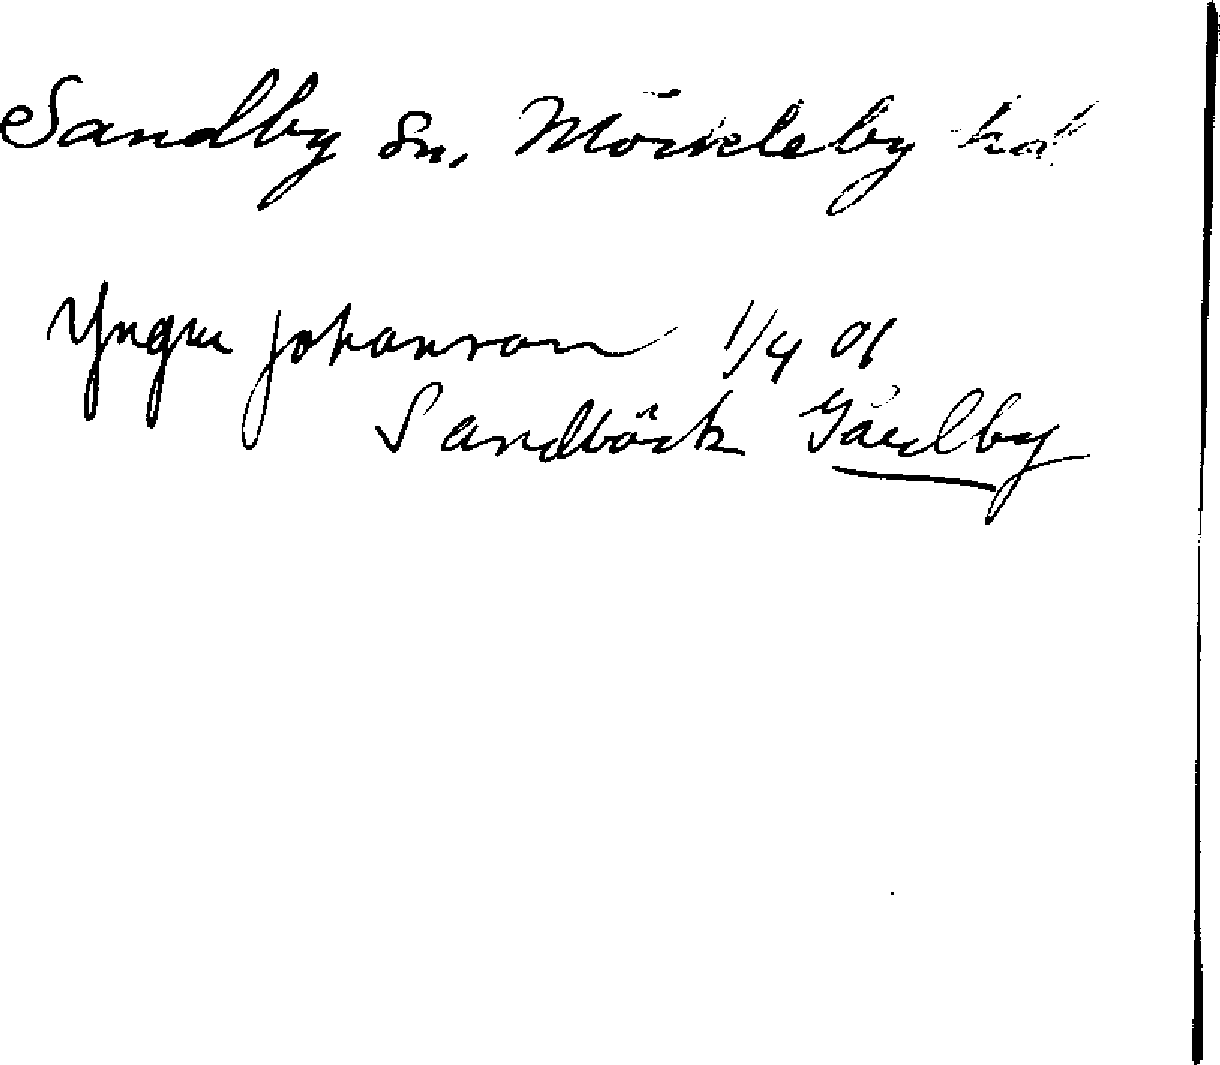 Sandby sn, Möckleby hd
Yngve Johansson 1/4 01
Sandbäck Gårdby